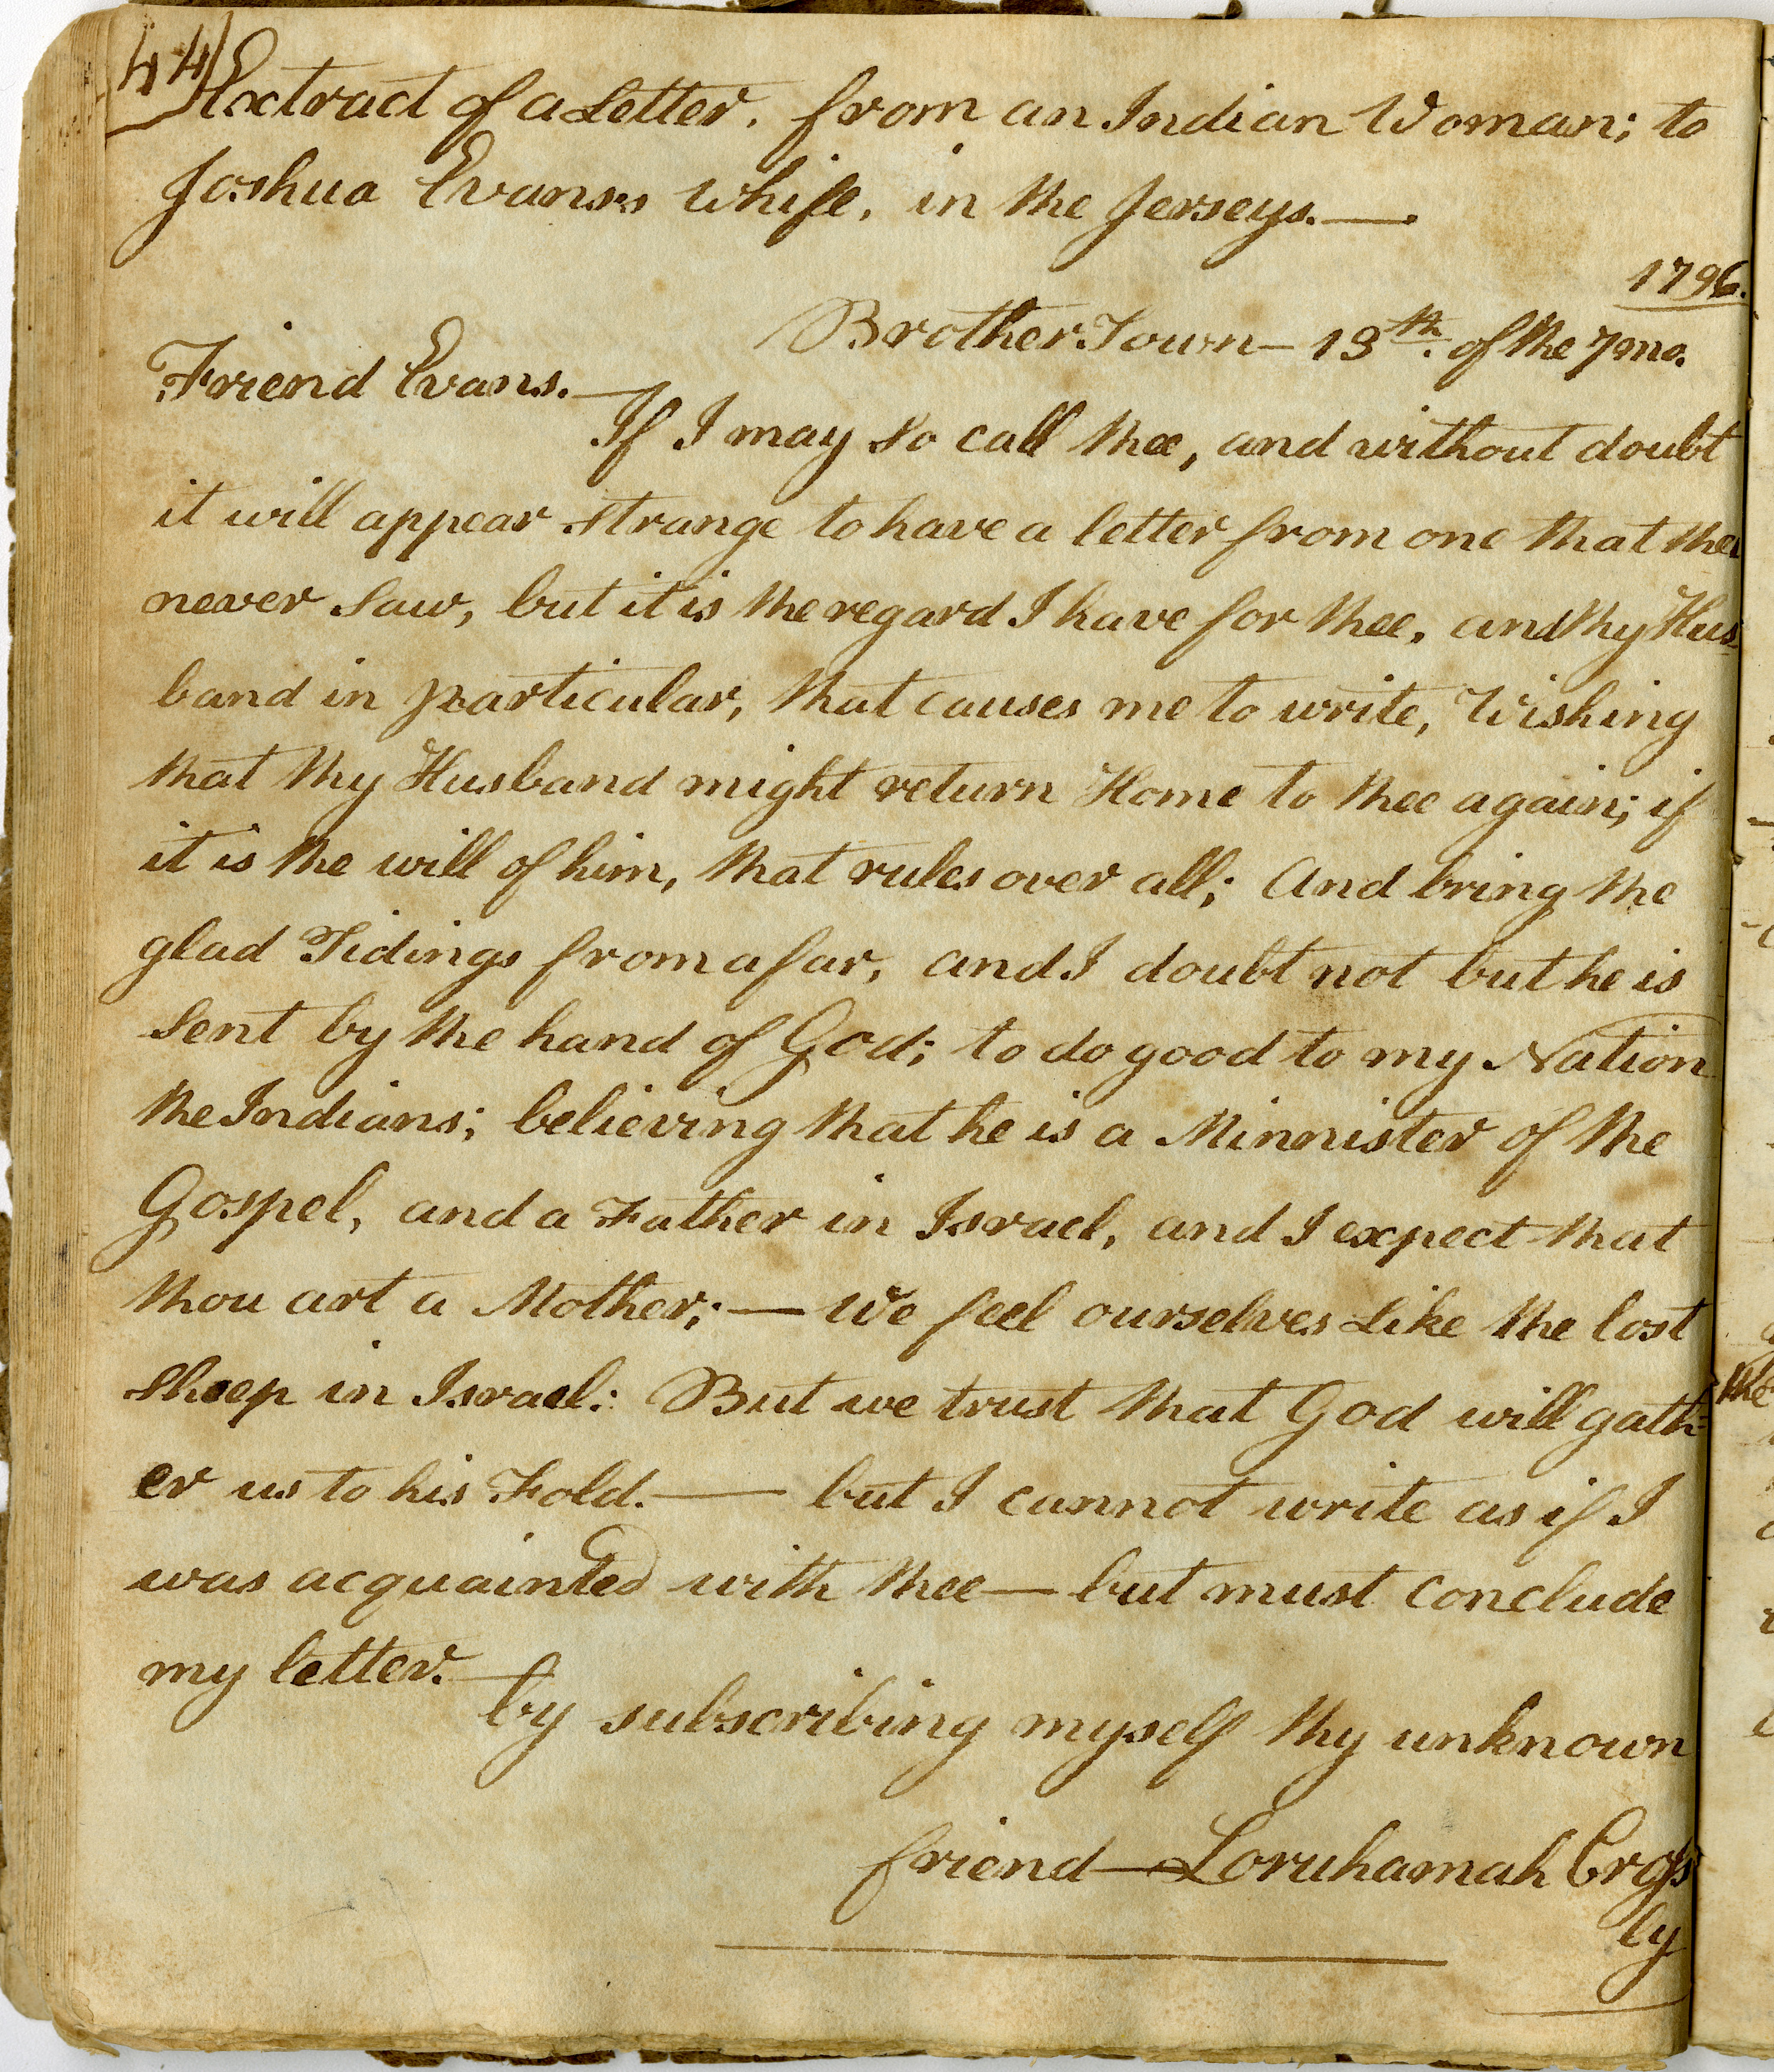 44
Extract of a Letter, from an Indian Woman; to
Joshua Evans's Whife, in the Jerseys.—
1796.
BrotherTown— 13th. of the 7mo.
Friend Evans.—
If I may so call thee, and without doubt
it will appear strange to have a letter from one that thee
never saw, but it is the regard I have for thee, and thy Hus-
band in particular, that causes me to write, Wishing
that thy Husband might return Home to thee again; if
it is the will of him, that rules over all; And bring the
glad Tidings from afar, and I doubt not but he is
sent by the hand of God; to do good to my Nation
the Indians; believing that he is a Minnister of the
Gospel, and a Father in Israel, and I expect that
thou art a Mother;— We feel ourselves Like the lost
sheep in Israel: But we trust that God will gath-
er us to his Fold.— but I cannot write as if I
was acquainted with thee— but must conclude
my letter.—
by subscribing myself thy unknown
friend—Loruhamah Cross
ly
the